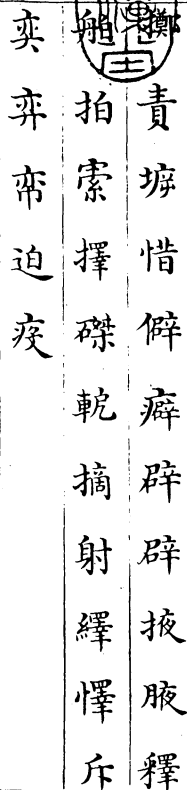 擲責惜僻癖辟辟掖腋釋
舶拍索擇磔軛摘射繹懌斥
奕弈帟迫疫